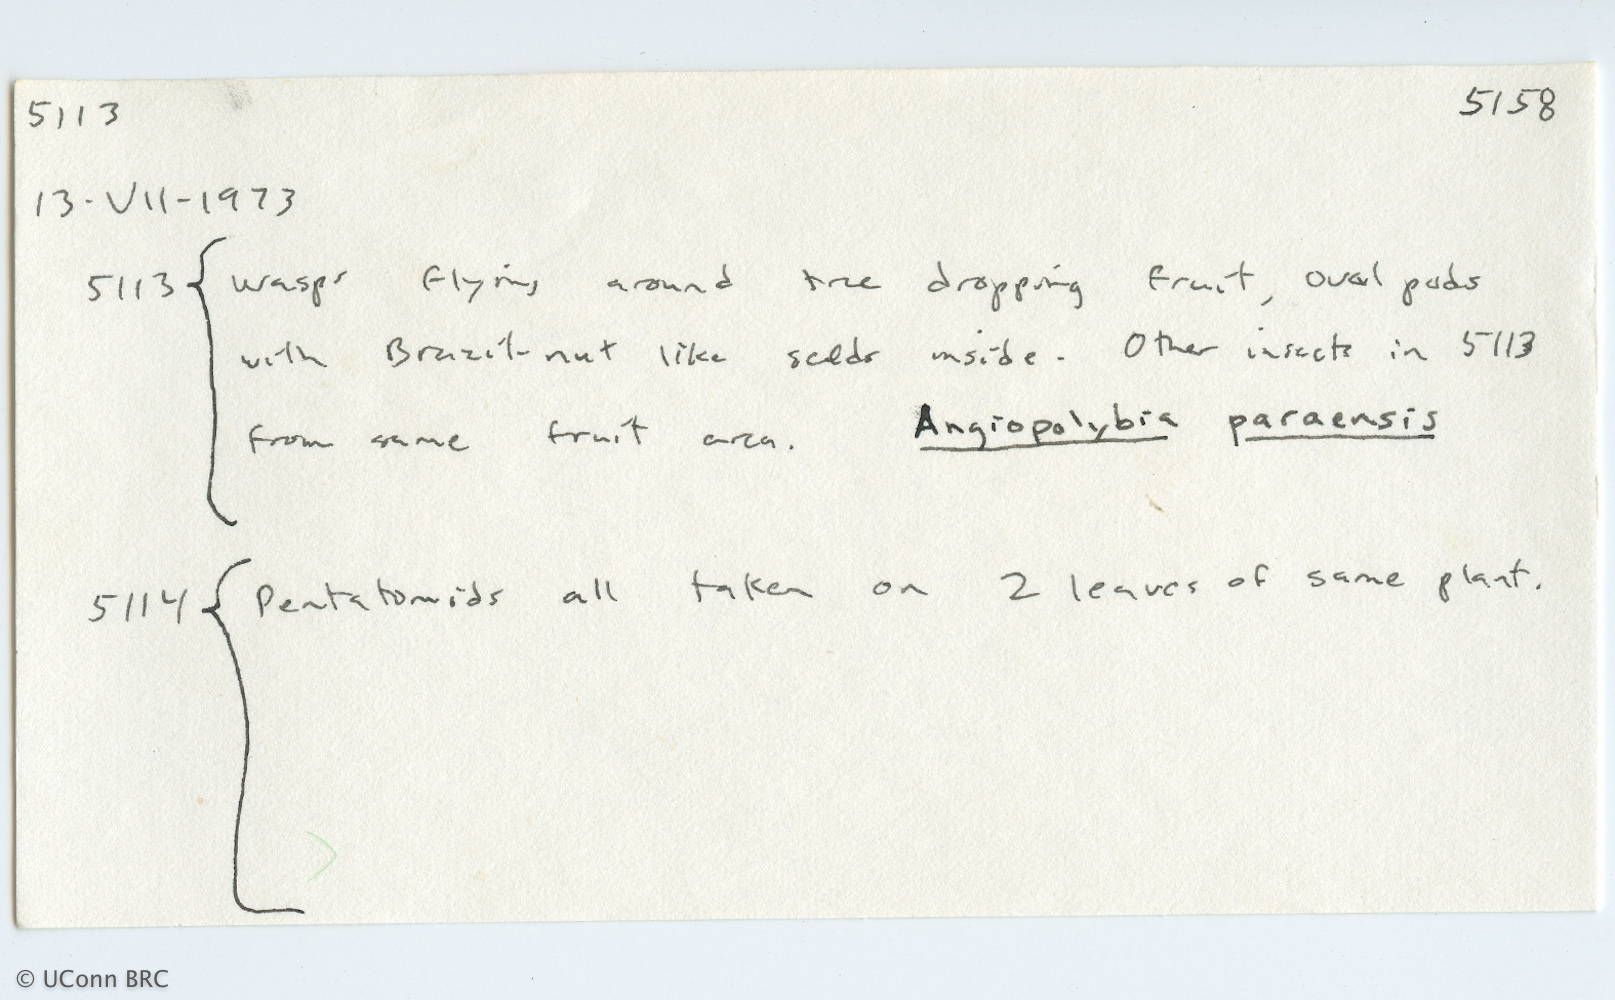 5113 5158
13-VII-1973
5113 { wasps flying around tree dropping fruit, oval pods
with Brazil-nut like seeds inside. Other insects in 5113
from same fruit area. Angiopolybia paraensis
5114 { Pentatomids all taken on 2 leaves of same plant.
© UConn BRC